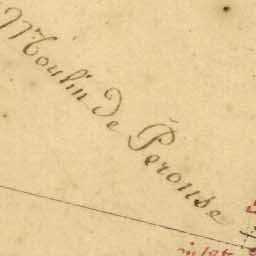 Moulin de Perouse